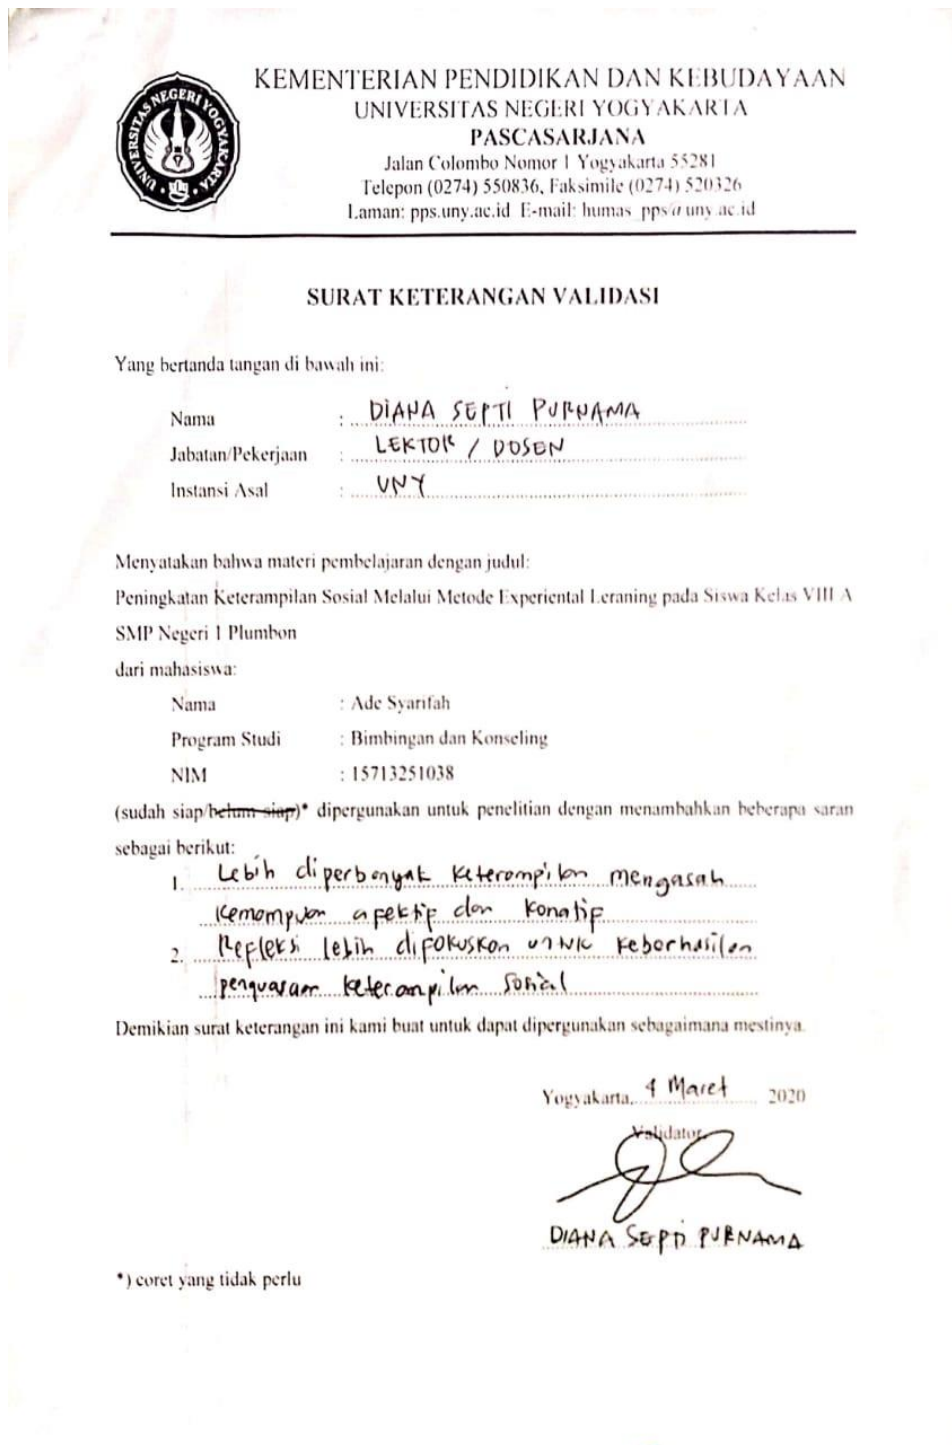 UNIVERSITAS NEGERI YOGYAKARTA
KEMENTERIAN PENDIDIKAN DAN KEBUDAYAAN
UNIVERSITAS NEGERI YOGYAKARTA
PASCASARJANA
Jalan Colombo Nomor 1 Yogyakarta 55281
Telepon (0274) 550836, Faksimile (0274) 520326
Laman: pps.uny.ac.id E-mail: humas_pps@uny.ac.id
SURAT KETERANGAN VALIDASI
Yang bertanda tangan di bawah ini:
Nama : DIANA SEPTI PURNAMA
Jabatan/Pekerjaan : LEKTOR / DOSEN
Instansi Asal : UNY
Menyatakan bahwa materi pembelajaran dengan judul:
Peningkatan Keterampilan Sosial Melalui Metode Experiental Leraning pada Siswa Kelas VIII A
SMP Negeri 1 Plumbon
dari mahasiswa:
Nama : Ade Syarifah
Program Studi : Bimbingan dan Konseling
NIM : 15713251038
(sudah siap/belum siap)* dipergunakan untuk penelitian dengan menambahkan beberapa saran
sebagai berikut:
1. Lebih diperbanyak keterampilan mengasah
kemampuan afektif dan konatif
2. Refleksi lebih difokuskan untuk keberhasilan
penguasaan keterampilan sosial
Demikian surat keterangan ini kami buat untuk dapat dipergunakan sebagaimana mestinya.
Yogyakarta, 4 Maret 2020
Validator,
DIANA SEPTI PURNAMA
*) coret yang tidak perlu